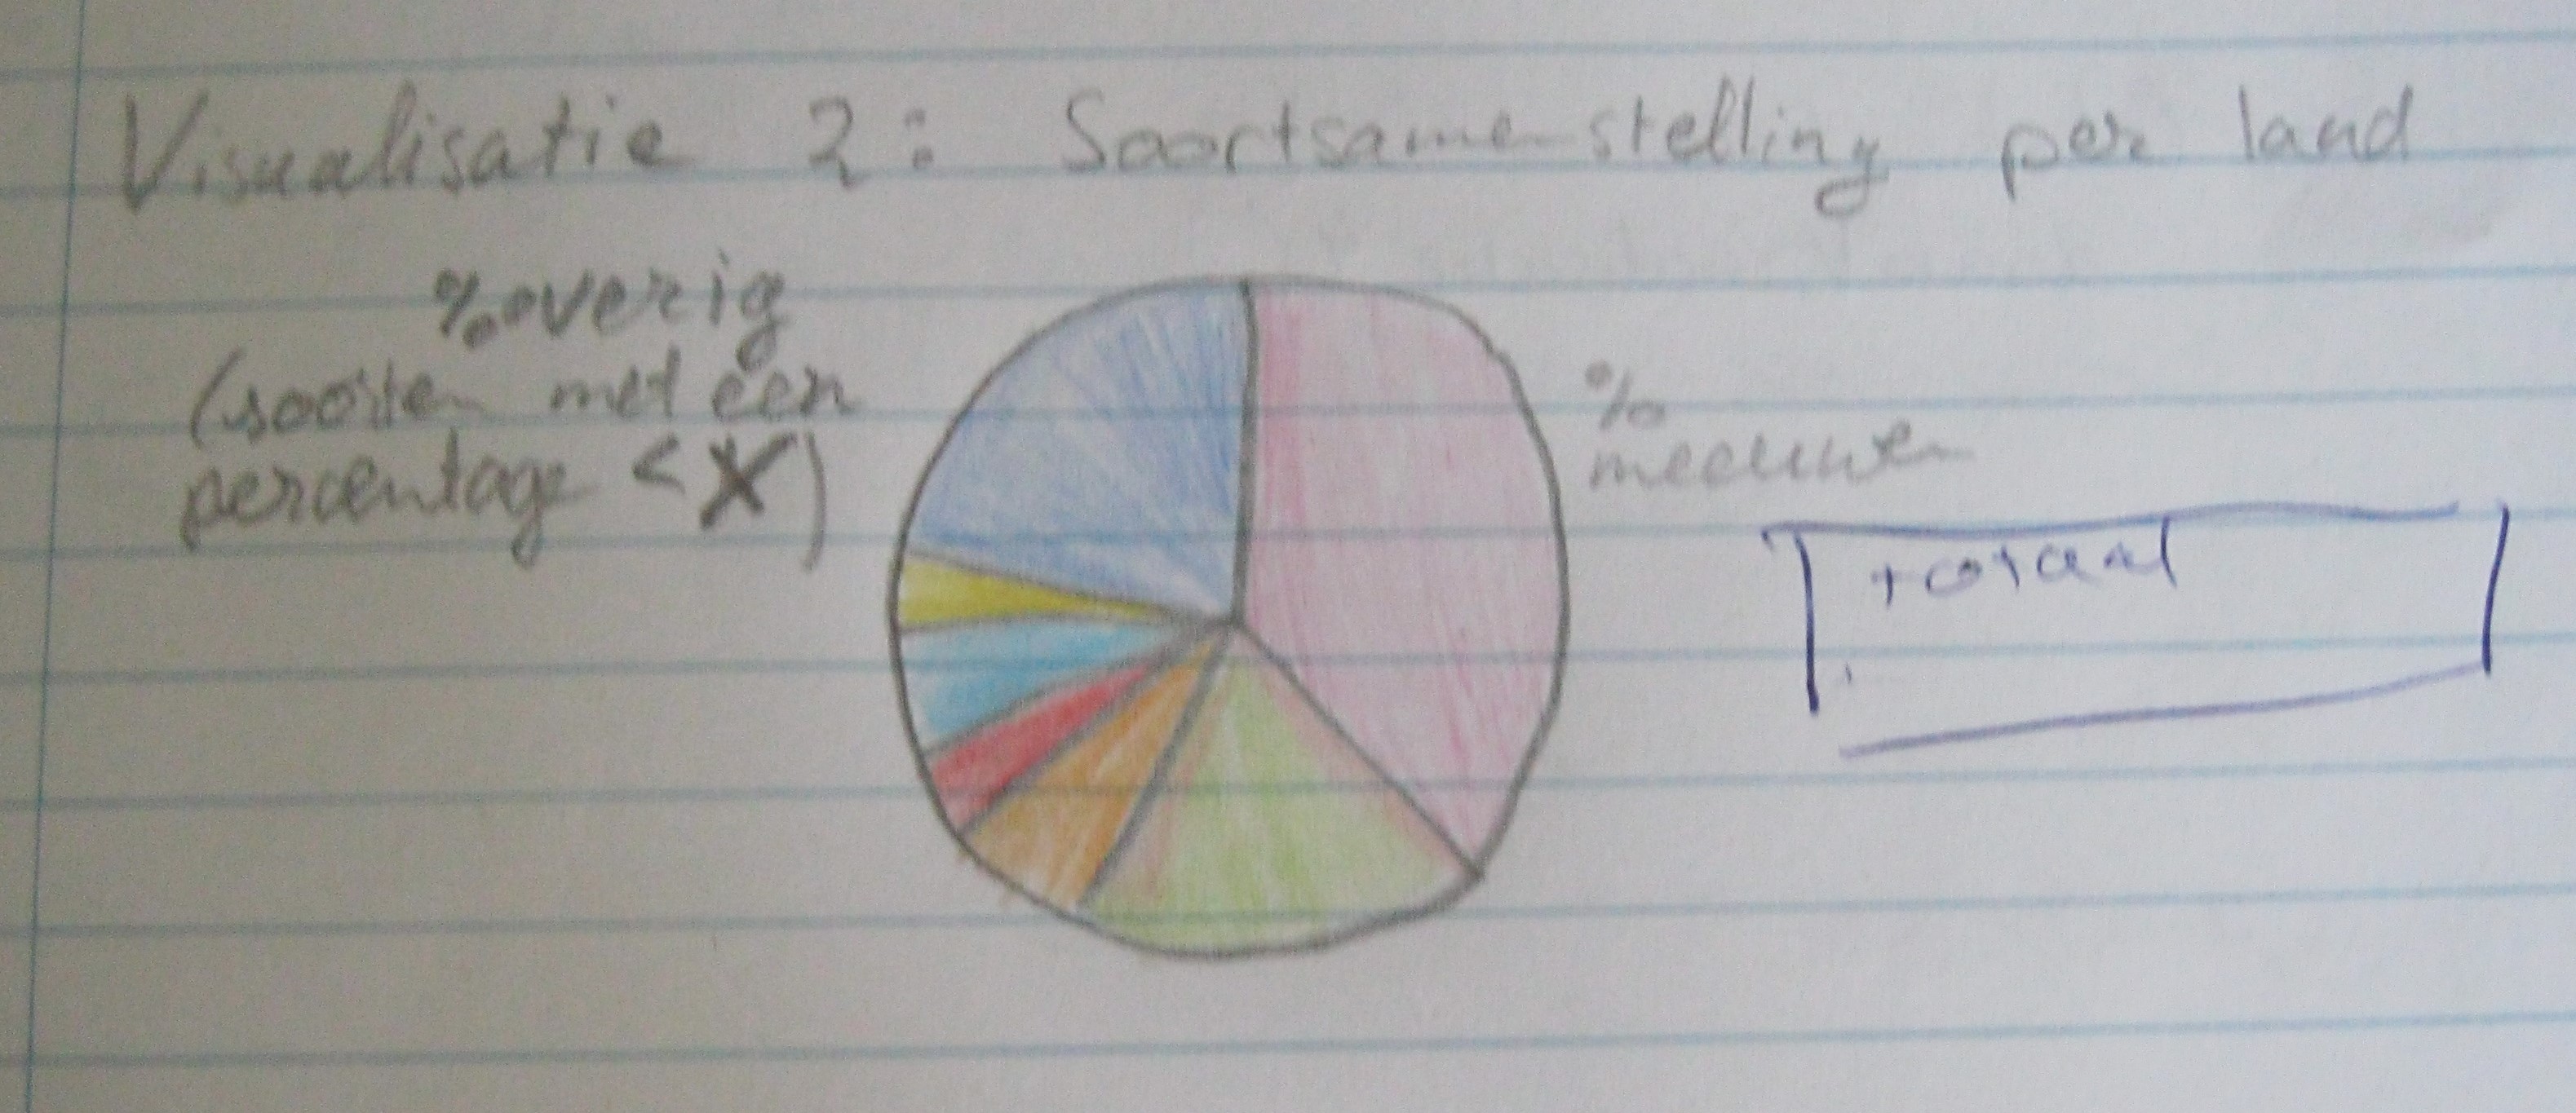 Visualisatie 2: Soortsamenstelling per land
% overig
(soorten met een
percentage < X)
%
meeuwen
totaal